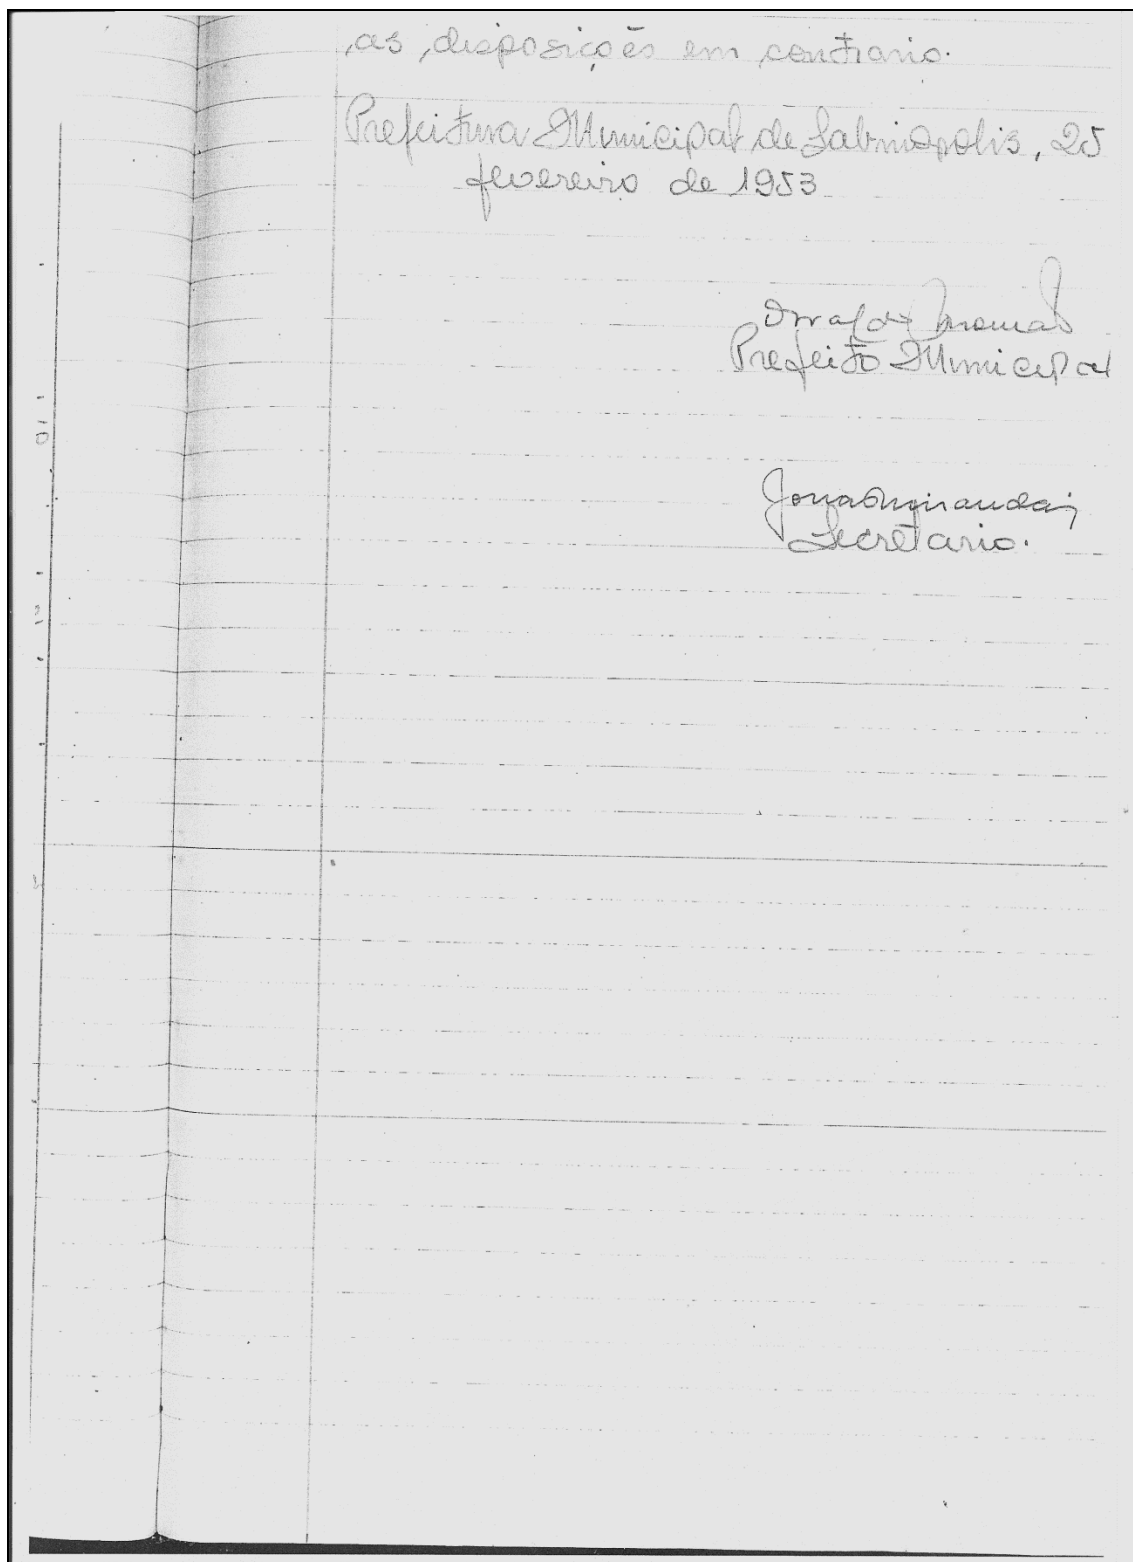 as disposições em contrario.
Prefeitura Municipal de Sabinopolis, 25
fevereiro de 1953
Prefeito Municipal
Secretario.